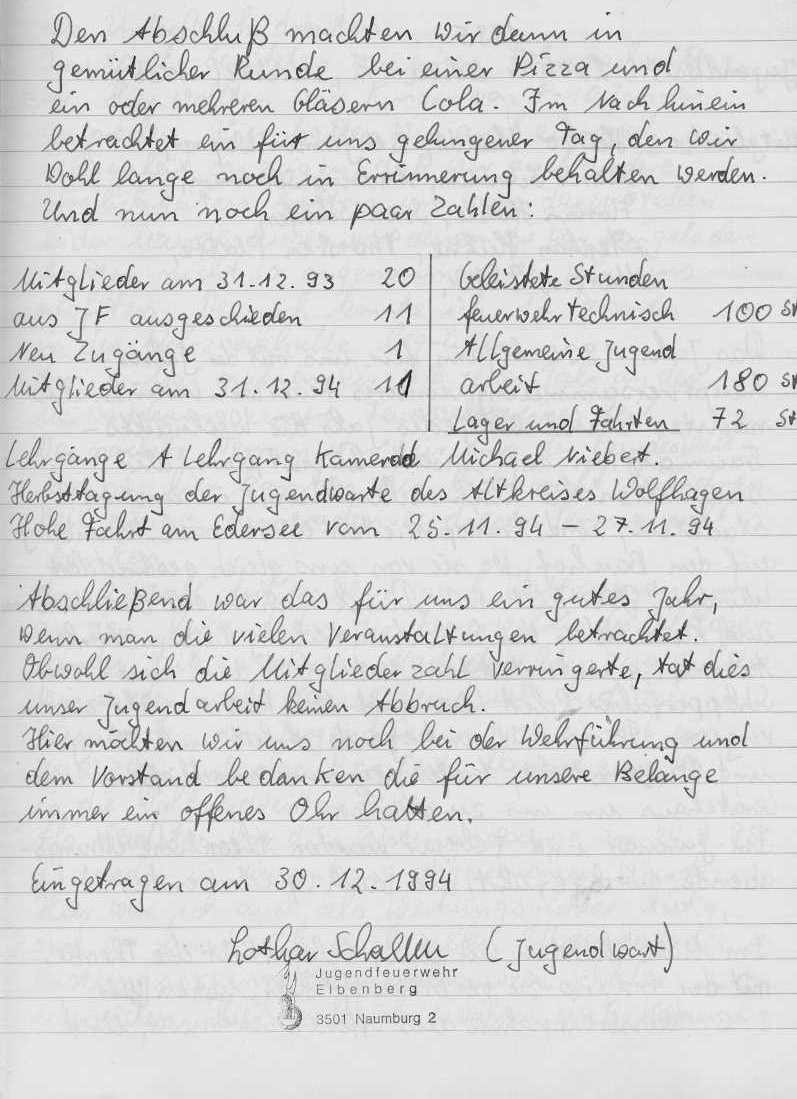 Den Abschluß machten wir dann in
gemütlicher Runde bei einer Pizza und
ein oder mehreren Gläsern Cola. Im Nachhinein
betrachtet ein für uns gelungener Tag, den wir
Wohl lange noch in Errinnerung behalten werden.
Und nun noch ein paar Zahlen:
Mitglieder am 31.12.93 20
aus JF ausgeschieden 11
Neu Zugänge 1
Mitglieder am 31.12.94 11
Geleistete Stunden
feuerwehrtechnisch 100 St
Allgemeine Jugend
arbeit 180 St
Lager und Fahrten 72 St
Lehrgänge A Lehrgang Kamerad Michael Niebert.
Herbsttagung der Jugendwarte des Altkreises Wolfhagen
Hohe Fahrt am Edersee vom 25.11.94 – 27.11.94
Abschließend war das für uns ein gutes Jahr,
wenn man die vielen Veranstaltungen betrachtet.
Obwohl sich die Mitgliederzahl verringerte, tat dies
unser Jugendarbeit keinen Abbruch.
Hier möchten wir uns noch bei der Wehrführung und
dem Vorstand bedanken die für unsere Belange
immer ein offenes Ohr hatten.
Eingetragen am 30.12.1994
Lothar (Jugendwart)
Jugendfeuerwehr
Elbenberg
3501 Naumburg 2